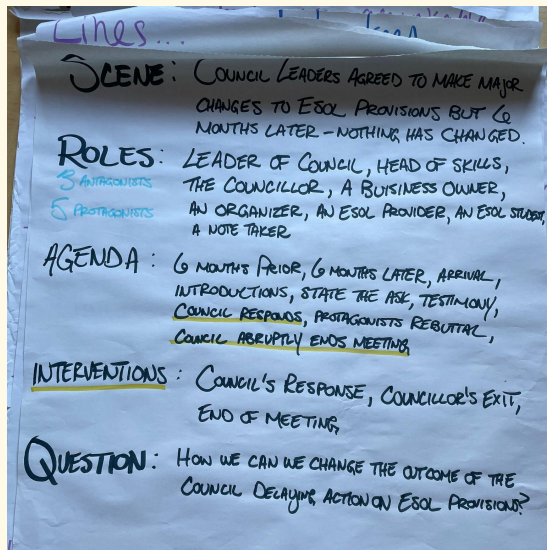 Lines...
SCENE: COUNCIL LEADERS AGREED TO MAKE MAJOR
CHANGES TO ESOL PROVISIONS BUT 6
MONTHS LATER - NOTHING HAS CHANGED.
ROLES: LEADER OF COUNCIL, HEAD OF SKILLS,
3 ANTAGONISTS THE COUNCILLOR, A BUISINESS OWNER,
5 PROTAGONISTS AN ORGANIZER, AN ESOL PROVIDER, AN ESOL STUDENT,
A NOTE TAKER
AGENDA: 6 MONTHS PRIOR, 6 MONTHS LATER, ARRIVAL,
INTRODUCTIONS, STATE THE ASK, TESTIMONY,
COUNCIL RESPONDS, PROTAGONISTS REBUTTAL,
COUNCIL ABRUPTLY ENDS MEETING
INTERVENTIONS: COUNCIL'S RESPONSE, COUNCILLOR'S EXIT,
END OF MEETING
QUESTION: HOW WE CAN WE CHANGE THE OUTCOME OF THE
COUNCIL DELAYING ACTION ON ESOL PROVISIONS?